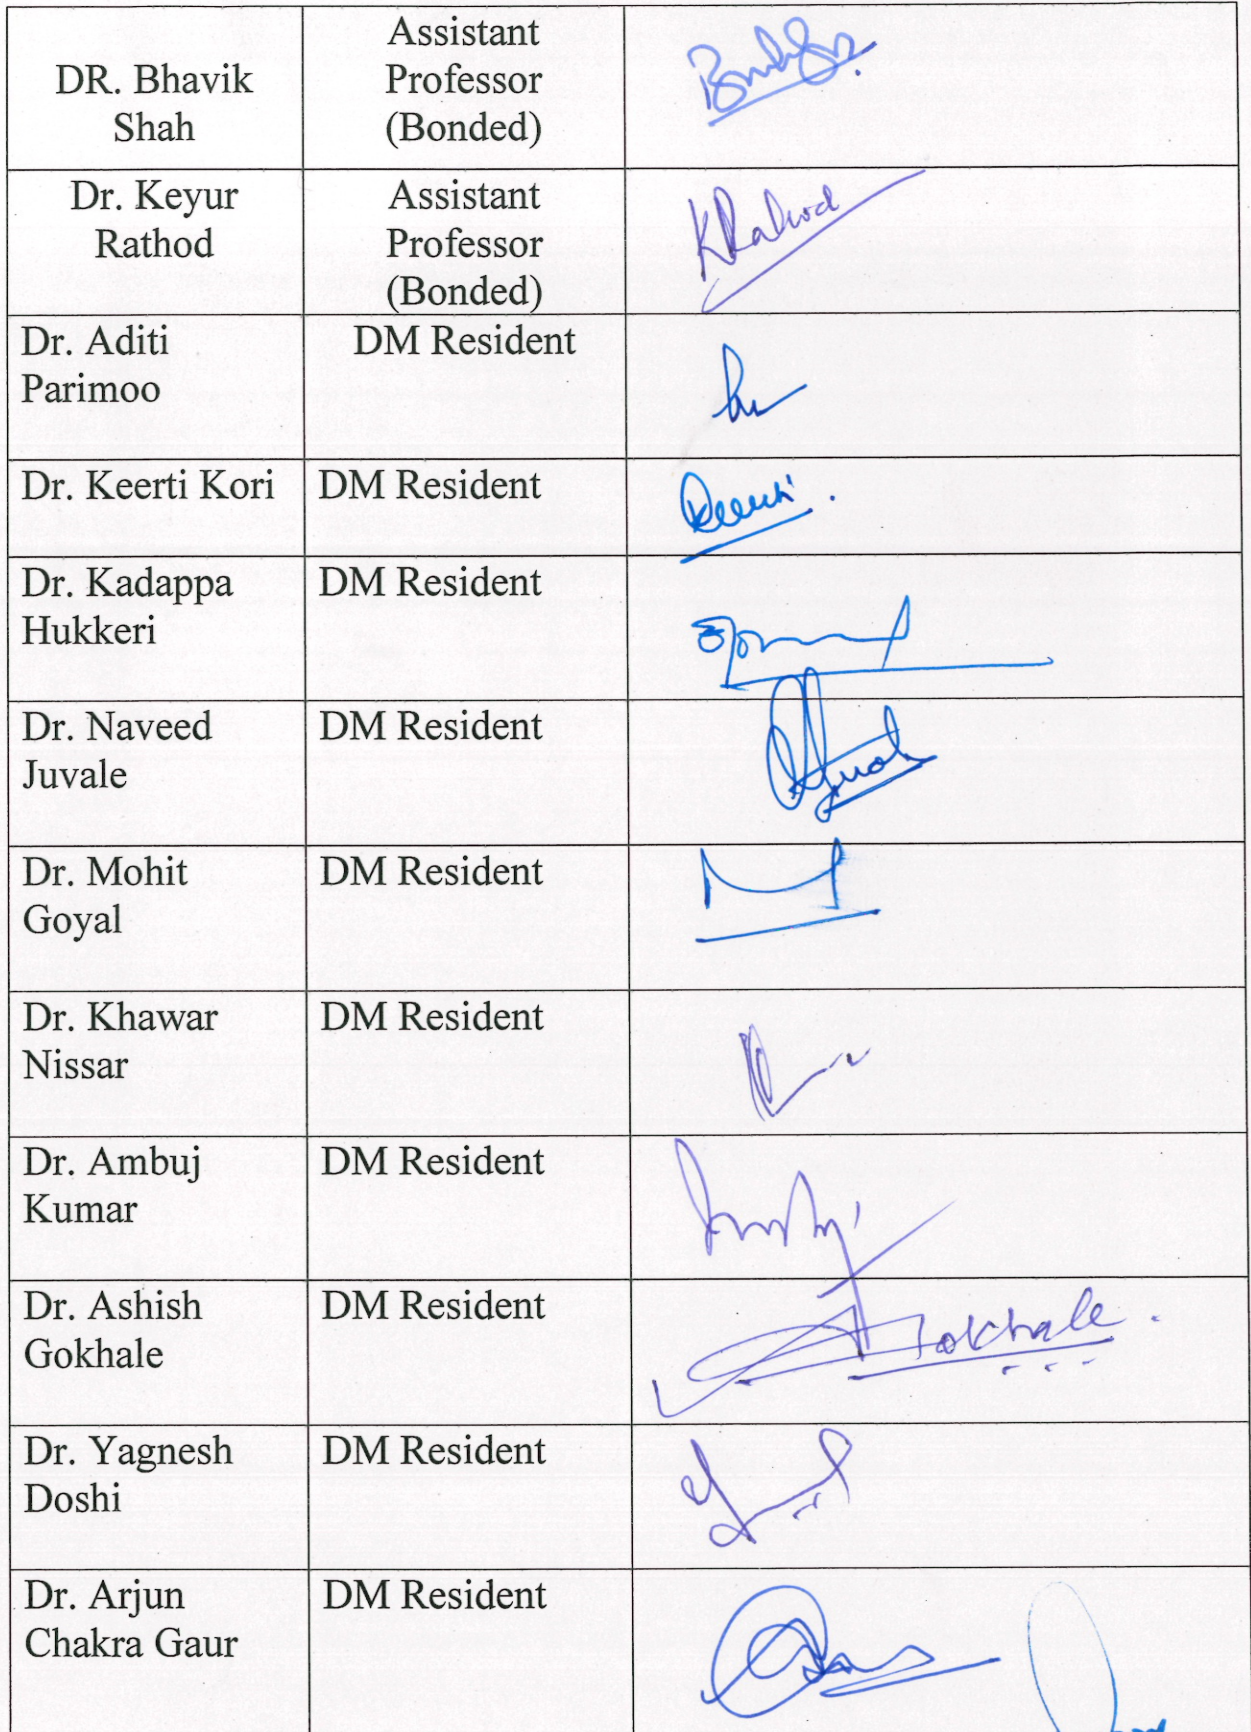 DR. Bhavik
Shah
Assistant
Professor
(Bonded)
Dr. Keyur
Rathod
Assistant
Professor
(Bonded)
KRathod
Dr. Aditi
Parimoo
DM Resident
Dr. Keerti Kori
DM Resident
Keerti
Dr. Kadappa
Hukkeri
DM Resident
Dr. Naveed
Juvale
DM Resident
Dr. Mohit
Goyal
DM Resident
Dr. Khawar
Nissar
DM Resident
Dr. Ambuj
Kumar
DM Resident
Dr. Ashish
Gokhale
DM Resident
Gokhale
Dr. Yagnesh
Doshi
DM Resident
Dr. Arjun
Chakra Gaur
DM Resident